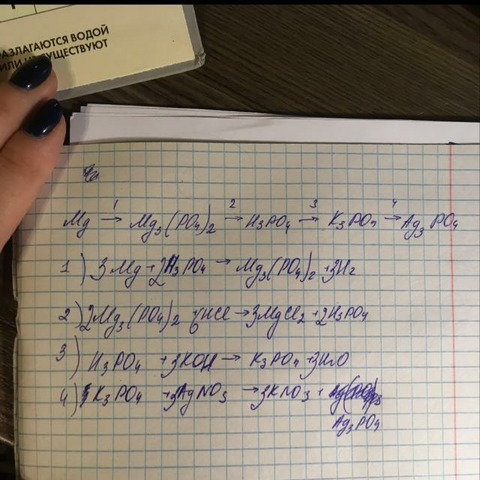 РАЗЛАГАЮТСЯ ВОДОЙ
ИЛИ НЕ СУЩЕСТВУЮТ
Mg →¹ Mg₃(PO₄)₂ →² H₃PO₄ →³ K₃PO₄ →⁴ Ag₃PO₄
1) 3Mg + 2H₃PO₄ → Mg₃(PO₄)₂ + 3H₂
2) 2Mg₃(PO₄)₂ + 6HCl → 3MgCl₂ + 2H₃PO₄
3) H₃PO₄ + 3KOH → K₃PO₄ + 3H₂O
4) K₃PO₄ + 3AgNO₃ → 3KNO₃ +
Ag₃PO₄